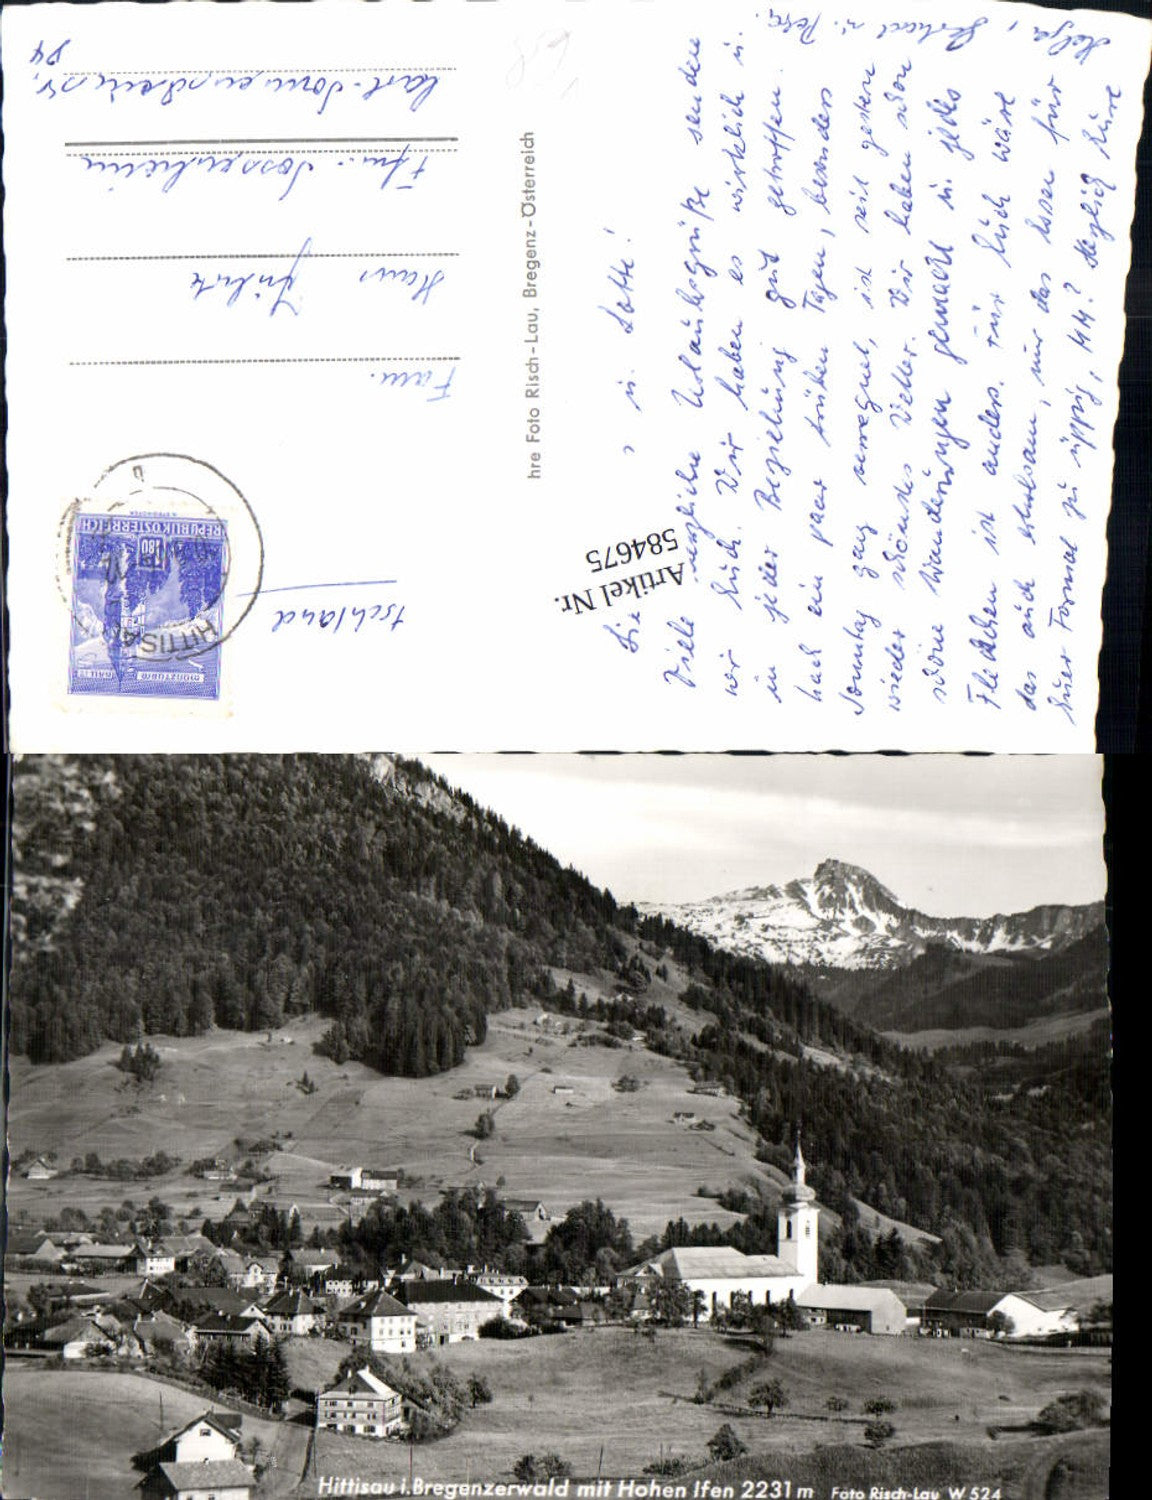 Liebe u. Lotte!
Viele herzliche Urlaubsgrüße senden
wir Euch. Wir haben es wirklich in
in jeder Beziehung gut getroffen.
Nach ein paar trüben Tagen, besonders
Sonntag ganz verregnet, ist seit gestern
wieder schönstes Wetter. Wir haben schon
schöne Wanderungen gemacht u. jedes
Fleckchen ist anders. Für Euch wäre
das auch erholsam, nur das Essen für
Euer Format zu üppig, Herzlich Eure
Helga, u. Peter.
tschland
Fam.
Hans
Ffm. Sossenheim
84
hre Foto Risch-Lau, Bregenz-Österreich
Artikel Nr.
584675
REPUBLIK ÖSTERREICH
180
MÜNZTURM
HALL I T
HITTISAU
Hittisau i. Bregenzerwald mit Hohen Ifen 2231 m Foto Risch-Lau W 524